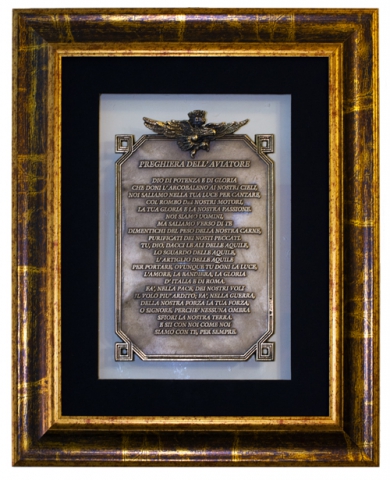 PREGHIERA DELL'AVIATORE
DIO DI POTENZA E DI GLORIA
CHE DONI L'ARCOBALENO AI NOSTRI CIELI,
NOI SALIAMO NELLA TUA LUCE PER CANTARE,
COL ROMBO DEI NOSTRI MOTORI,
LA TUA GLORIA E LA NOSTRA PASSIONE.
NOI SIAMO UOMINI,
MA SALIAMO VERSO DI TE
DIMENTICHI DEL PESO DELLA NOSTRA CARNE,
PURIFICATI DEI NOSTRI PECCATI.
TU, DIO, DACCI LE ALI DELLE AQUILE,
LO SGUARDO DELLE AQUILE,
L'ARTIGLIO DELLE AQUILE
PER PORTARE, OVUNQUE TU DONI LA LUCE,
L'AMORE, LA BANDIERA, LA GLORIA
D'ITALIA E DI ROMA.
FA', NELLA PACE, DEI NOSTRI VOLI
IL VOLO PIU' ARDITO; FA', NELLA GUERRA,
DELLA NOSTRA FORZA LA TUA FORZA,
O SIGNORE, PERCHE' NESSUNA OMBRA
SFIORI LA NOSTRA TERRA.
E SII CON NOI COME NOI
SIAMO CON TE, PER SEMPRE.